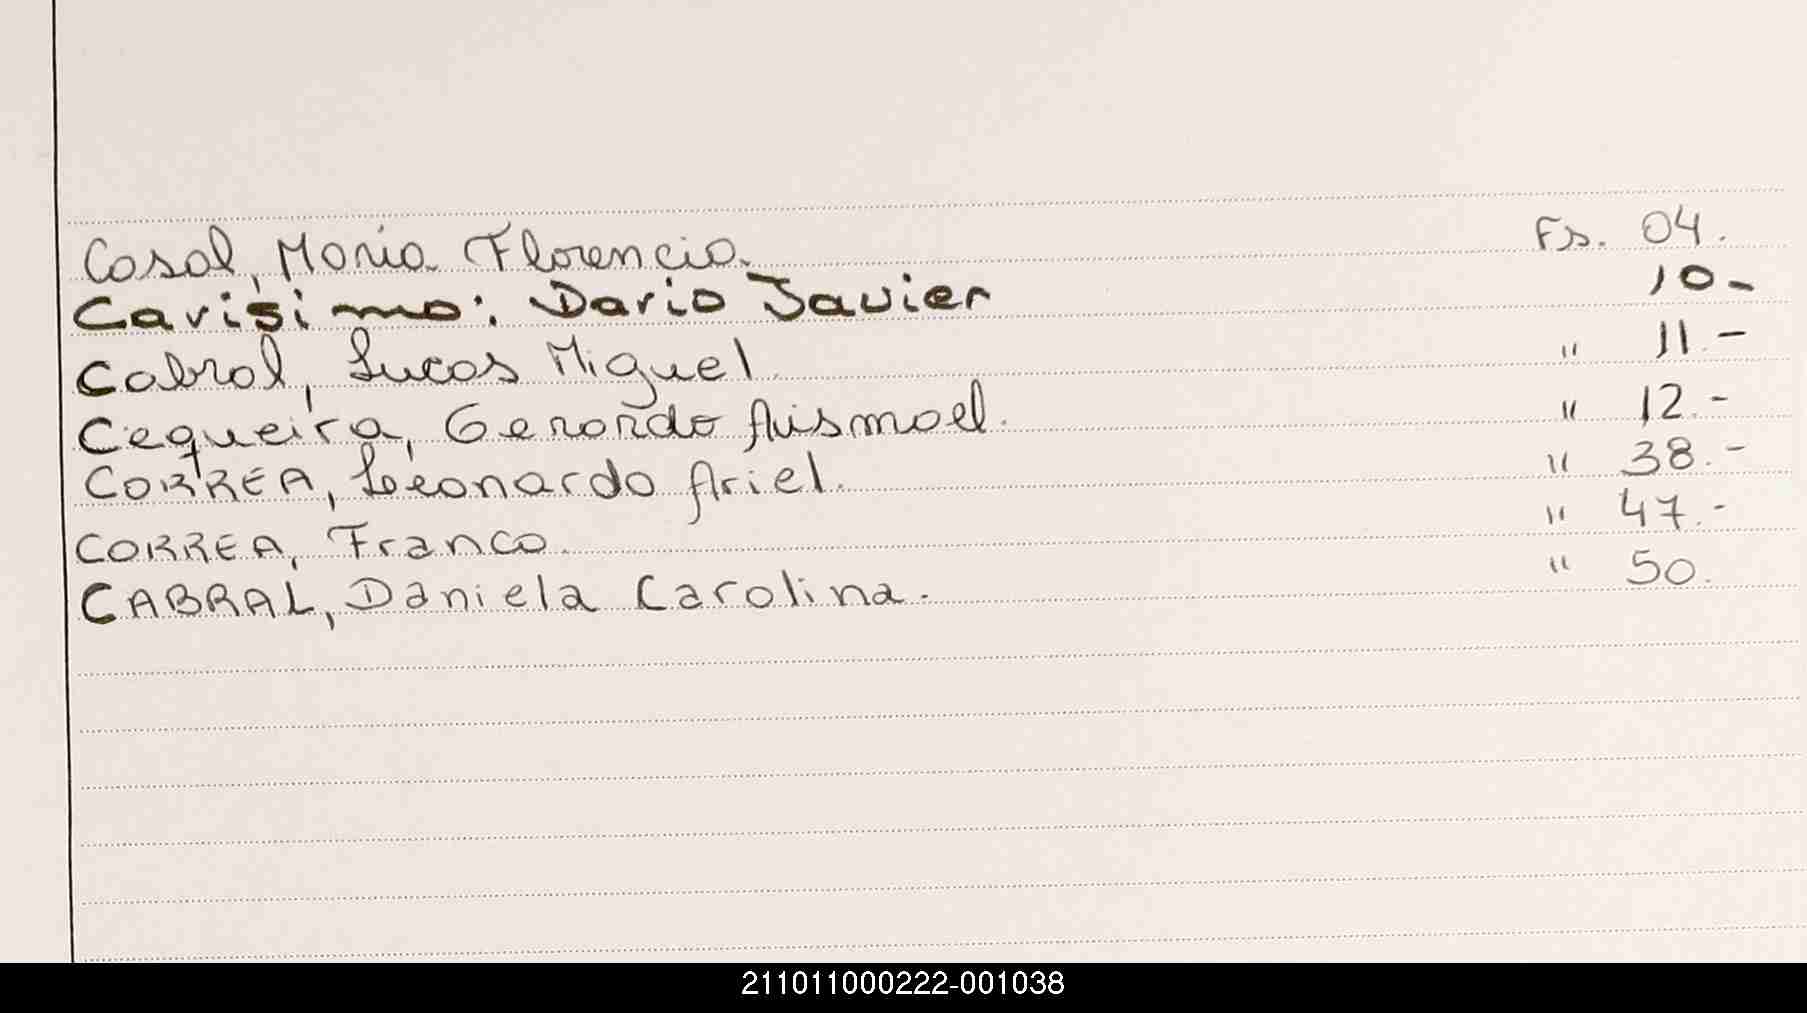 Casal, Maria Florencia. Fs. 04.
Carisimo: Dario Javier 10-
Cabral, Lucas Miguel. " 11.-
Cequeira, Gerardo Aismael. " 12.-
CORREA, Leonardo Ariel. " 38.-
CORREA, Franco. " 47.-
CABRAL, Daniela Carolina. " 50.
211011000222-001038